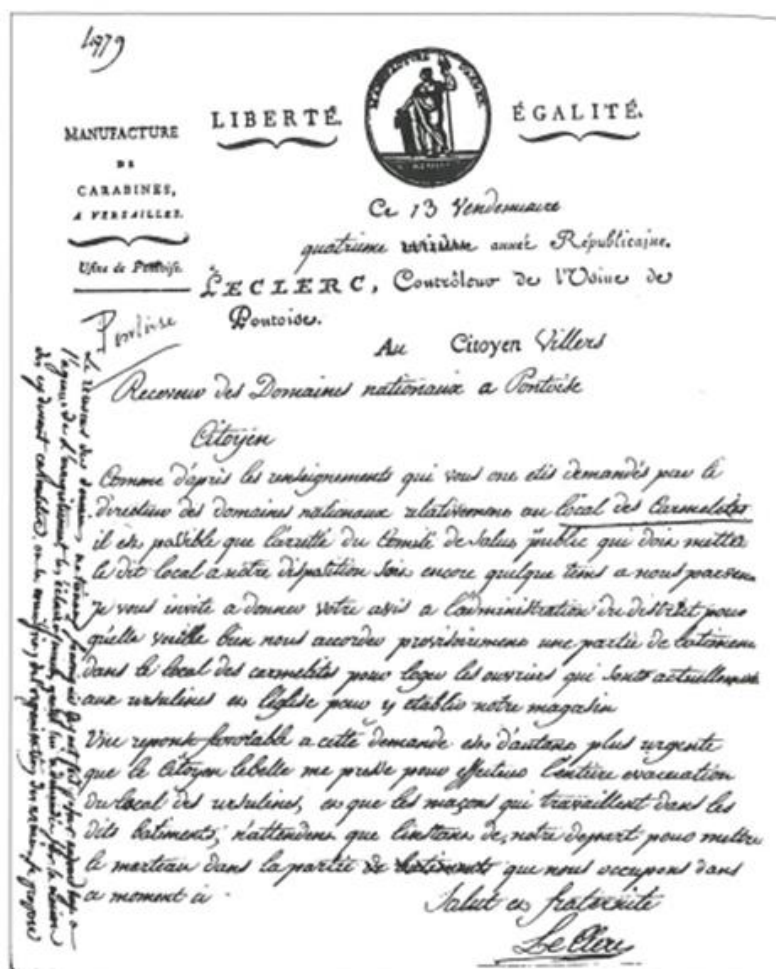 4979
LIBERTÉ.
ÉGALITÉ.
MANUFACTURE
DE
CARABINES,
A VERSAILLES.
Usine de Pontoise.
Pontoise
Ce 13 Vendemiaire
quatrieme année Républicaine.
LECLERC, Contrôleur de l'Usine de
Pontoise.
Au Citoyen Villers
Receveur des Domaines nationaux a Pontoise
Citoyen
Comme d'après les renseignements qui vous ont etés demandés par le
directeur des domaines nationaux relativement au local des Carmelites
il est possible que l'arretté du Comité de Salut public qui doit mettre
le dit local a notre disposition soit encore quelque tems a nous parvenir
je vous invite a donner votre avis a l'administration du district pour
qu'elle veuille bien nous accorder provisoirement une partie de batiment
dans le local des carmelites pour loger les ouvriers qui sont actuellement
aux ursulines et l'eglise pour y etablir notre magasin
Une reponse favorable a cette demande est d'autant plus urgente
que le Citoyen lebelle me presse pour effectuer l'entiere evacuation
du local des ursulines, et que les maçons qui travaillent dans les
dits batiments, n'attendent que l'instant de notre depart pour mettre
le marteau dans la partie que nous occupons dans
ce moment ci
Salut et fraternité
LeClerc